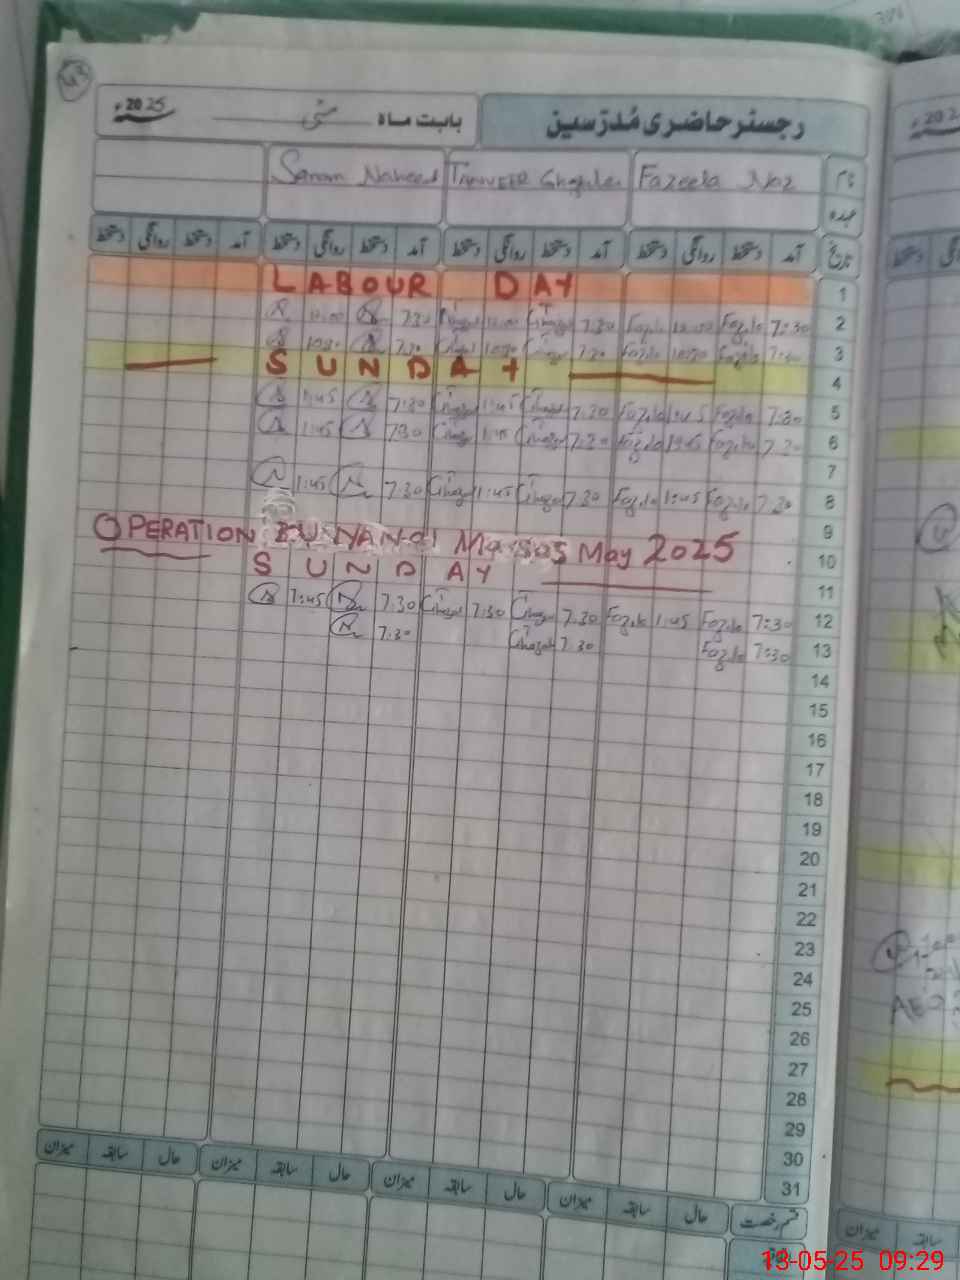 43
رجسٹر حاضری مُدرّسین بابت ماہ مئی 2025ء
نام Fazeela Naz Tanveer Ghazala Sanam Naheed
عہدہ
تاریخ آمد دستخط روانگی دستخط آمد دستخط روانگی دستخط آمد دستخط روانگی دستخط آمد دستخط روانگی دستخط
1 LABOUR DAY
2 7:30 Fazila 12:00 Fazila 7.30 Ghazal 12:00 Ghazal 7.30 12:00
3 7:30 Fazila 10:30 Fazila 7.30 Ghazal 10:30 Ghazal 7.30 10:30
4 SUNDAY
5 7:30 Fazila 1:45 Fazila 7.30 Ghazal 1:45 Ghazal 7:30 1:45
6 7:30 Fazila 1:45 Fazila 7.30 Ghazal 1:45 Ghazal 7:30 1:45
7
8 7:30 Fazila 1:45 Fazila 7.30 Ghazal 1:45 Ghazal 7:30 1:45
9
OPERATION BUNYANOL Marsos May 2025
10
11 SUNDAY
12 7:30 Fazila 1:45 Fazila 7.30 Ghazal 7:30 Ghazal 7:30 1:45
13 7:30 Fazila 7.30 Ghazal 7:30
14
15
16
17
18
19
20
21
22
23
24
25
26
27
28
29
30
31
قسم رخصت حال سابقہ میزان حال سابقہ میزان حال سابقہ میزان حال سابقہ میزان
13-05-25 09:29